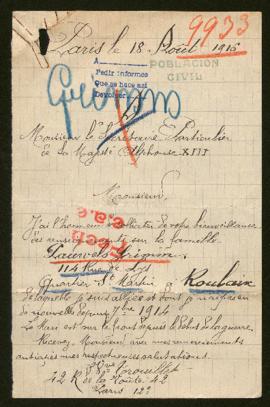 9933
Paris le 18 Août 1916
A
Pedir informes
Que se hace así
Devolver
POBLACIÓN
CIVIL
Monsieur le Secrétaire Particulier
de Sa Majesté Alphonse XIII
Monsieur,
J'ai l'honneur de solliciter de votre bienveillance
des renseignements sur la famille
114 Rue de
Quartier St Martin à Roubaix
de laquelle je suis et dont je n'ai pas eu
de nouvelle depuis 7bre 1914
Le Mari est sur le front depuis le début de la guerre
Recevez Monsieur avec mes remerciements
anticipés mes respectueuses salutations
42 R de la Voûte 42
Paris 12e